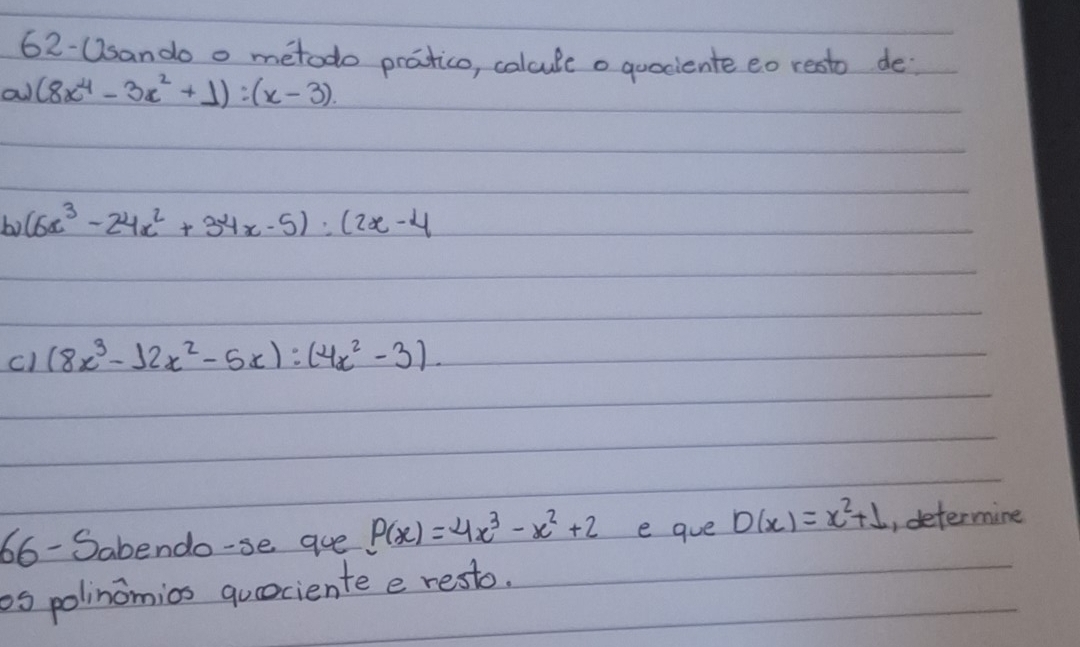 62-Usando o método prático, calcule o quociente e o resto de:
a) (8x⁴ - 3x² + 1) : (x - 3).
b) (6x³ - 24x² + 34x - 5) : (2x - 4
c) (8x³ - 12x² - 5x) : (4x² - 3).
66-Sabendo-se que P(x) = 4x³ - x² + 2 e que D(x) = x² + 1, determine
os polinômios quociente e resto.